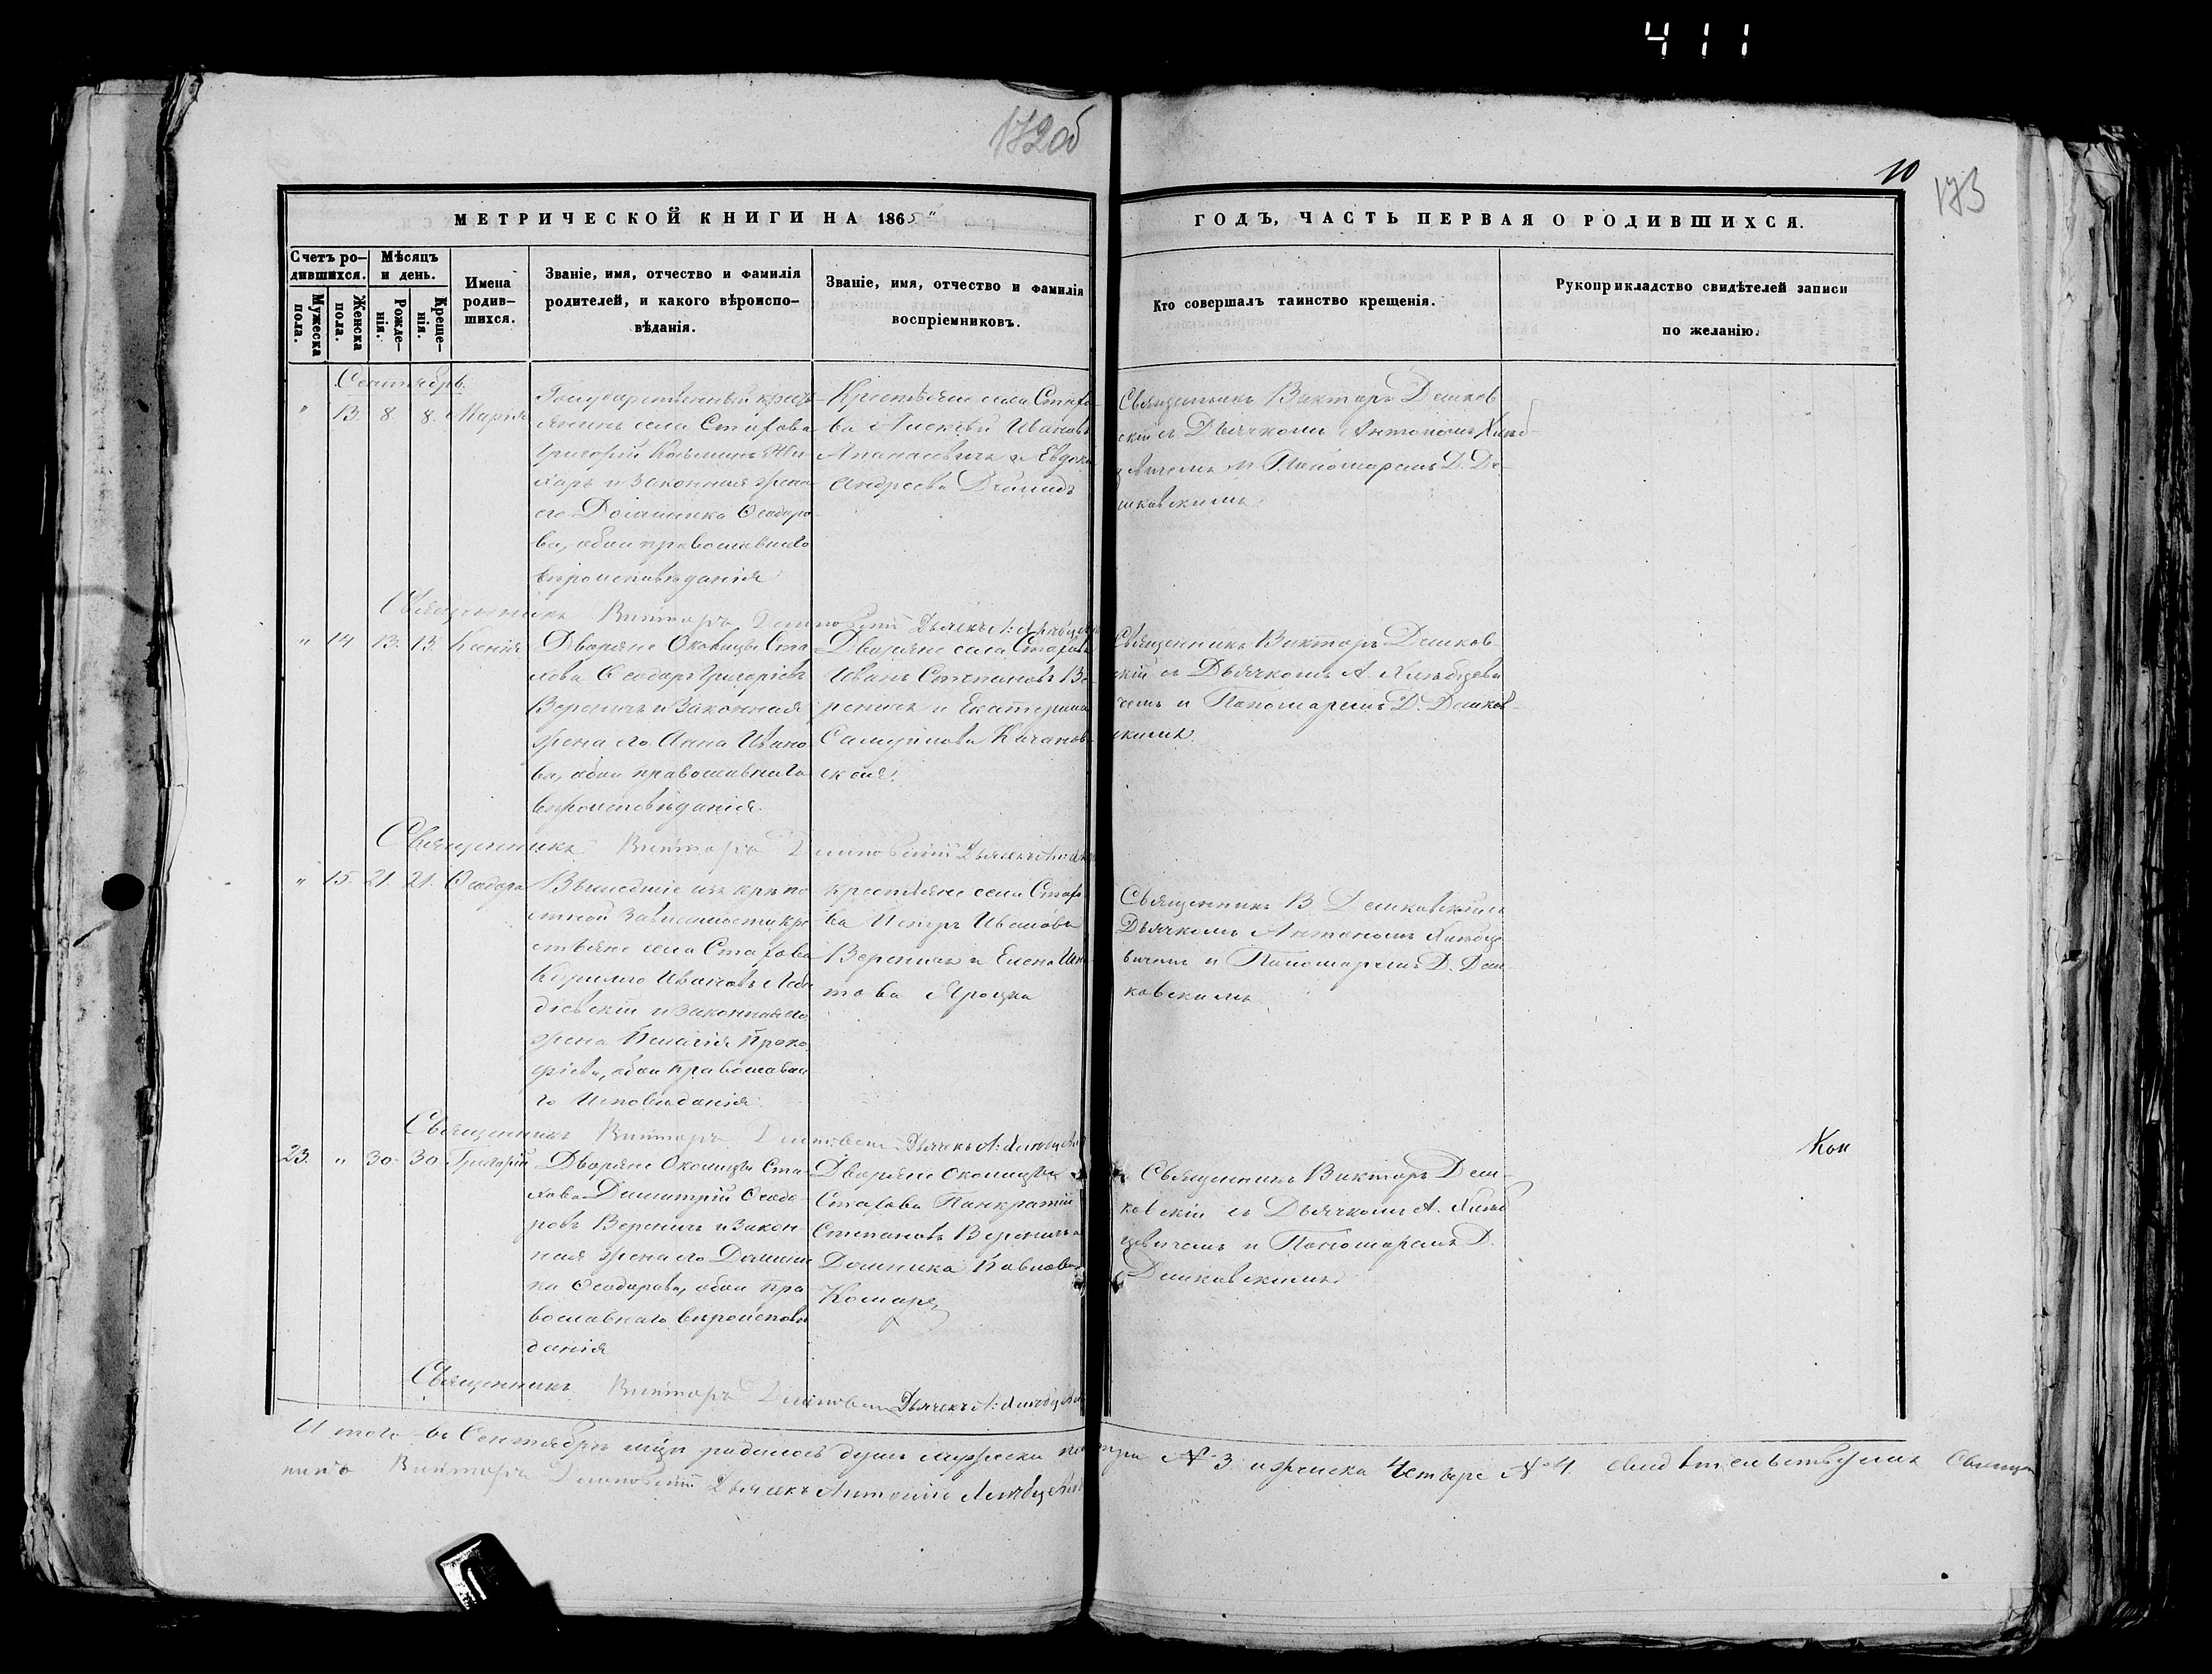 411
172об
10
173
МЕТРИЧЕСКОЙ КНИГИ НА 1865
ГОДЪ, ЧАСТЬ ПЕРВАЯ О РОДИВШИХСЯ.
Счетъ ро-
дившихся.
Мужеска
пола.
Женска
пола.
Мѣсяцъ
и день.
Рожде-
нія.
Креще-
нія.
Имена
родив-
шихся.
Званіе, имя, отчество и фамилія
родителей, и какого вѣроиспо-
вѣданія.
Званіе, имя, отчество и фамилія
воспріемниковъ.
Кто совершалъ таинство крещенія.
Рукоприкладство свидѣтелей записи
по желанію.
Сентябрь.
" 13. 8. 8. Марія
Государственный кресть-
янинъ села Стахова
Григорій Козьминъ
и законная жена
его Домникія Ѳеодоро-
ва, обои православнаго
вѣроисповѣданія
Крестьяне села Стахо-
ва Алексѣй Ивановъ
и Евдокія
Андреева
Священникъ Викторъ Дешков-
скій съ Дьячкомъ Антономъ Хлѣб-
цевичемъ и Пономаремъ Д. Де-
шковскимъ
Священникъ Викторъ Дешковскій Дьячекъ А. Хлѣбцевичъ
" 14 13. 13. Ксенія
Дворяне Околицы Ста-
хова Ѳеодоръ Григоріевъ
Вереничъ и Законная
жена его Анна Ивано-
ва, обои православнаго
вѣроисповѣданія.
Дворяне села Стахова
Иванъ Степановъ Ве-
реничъ и Екатерина
Самуйлова Качанов-
ская.
Священникъ Викторъ Дешков-
скій съ Дьячкомъ А. Хлѣбцеви-
чемъ и Пономаремъ Д. Дешков-
скимъ.
Священникъ Викторъ Дешковскій Дьячекъ
" 15. 21. 21. Ѳеодора
Вышедшіе изъ крѣпо-
стной зависимости кре-
стьяне села Стахова
Кирилло Ивановъ
и законная его
жена Пелагія Проко-
фіева, обои православна-
го Исповѣданія
крестьяне села Стахо-
ва Петръ Ивановъ
Вереничъ и Елена
Яроцка
Священникъ В. Дешковскій съ
Дьячкомъ Антономъ Хлѣбце-
вичемъ и Пономаремъ Д. Деш-
ковскимъ
Священникъ Викторъ Дешковскій Дьячекъ А. Хлѣбцевичъ
23. " 30. 30. Григорій
Дворяне Околицы Ста-
хова Димитрій Ѳеодо-
ровъ Вереничъ и Закон-
ная жена его Домни-
ка Ѳеодорова, обои пра-
вославнаго вѣроисповѣ-
данія
Дворяне околицы
Стахова Панкратій
Степановъ Вереничъ и
Домника Павлова
Комаръ,
Священникъ Викторъ Деш-
ковскій съ Дьячкомъ А. Хлѣб-
цевичемъ и Пономаремъ Д.
Дешковскимъ
Священникъ Викторъ Дешковскій Дьячекъ А. Хлѣбцевичъ
Итого въ Сентябрѣ мцѣ родилось душъ мужеска пола три № 3 и женска Четыре № 4. свидѣтельствуемъ Священ-
никъ Викторъ Дешковскій Дьячекъ Антоній Хлѣбцевичъ